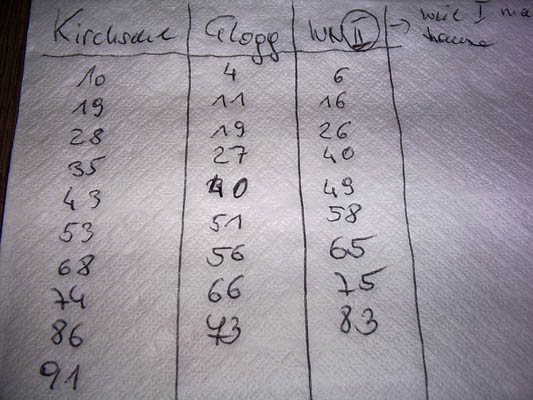 Kirchsau Glogg WN II → weil I
10 4 6
19 11 16
28 19 26
35 27 40
43 40 49
53 51 58
68 56 65
74 66 75
86 73 83
91